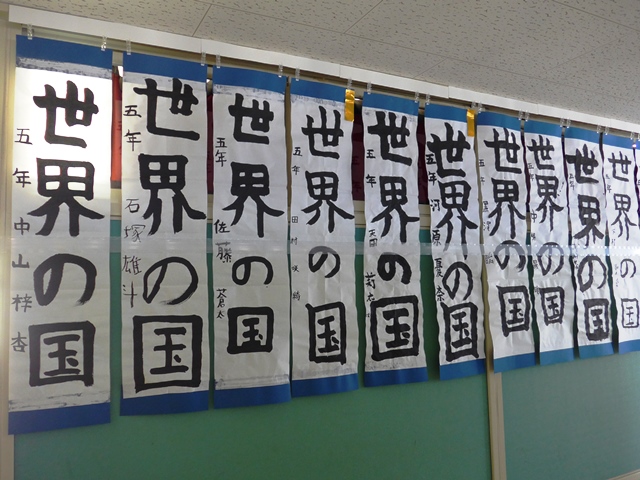 世界の国
五年 中山梓杏
世界の国
五年 石塚雄斗
世界の国
五年 佐藤蒼太
世界の国
五年 田村
世界の国
五年
世界の国
五年 河原
世界の国
世界の国
世界の国
世界の国